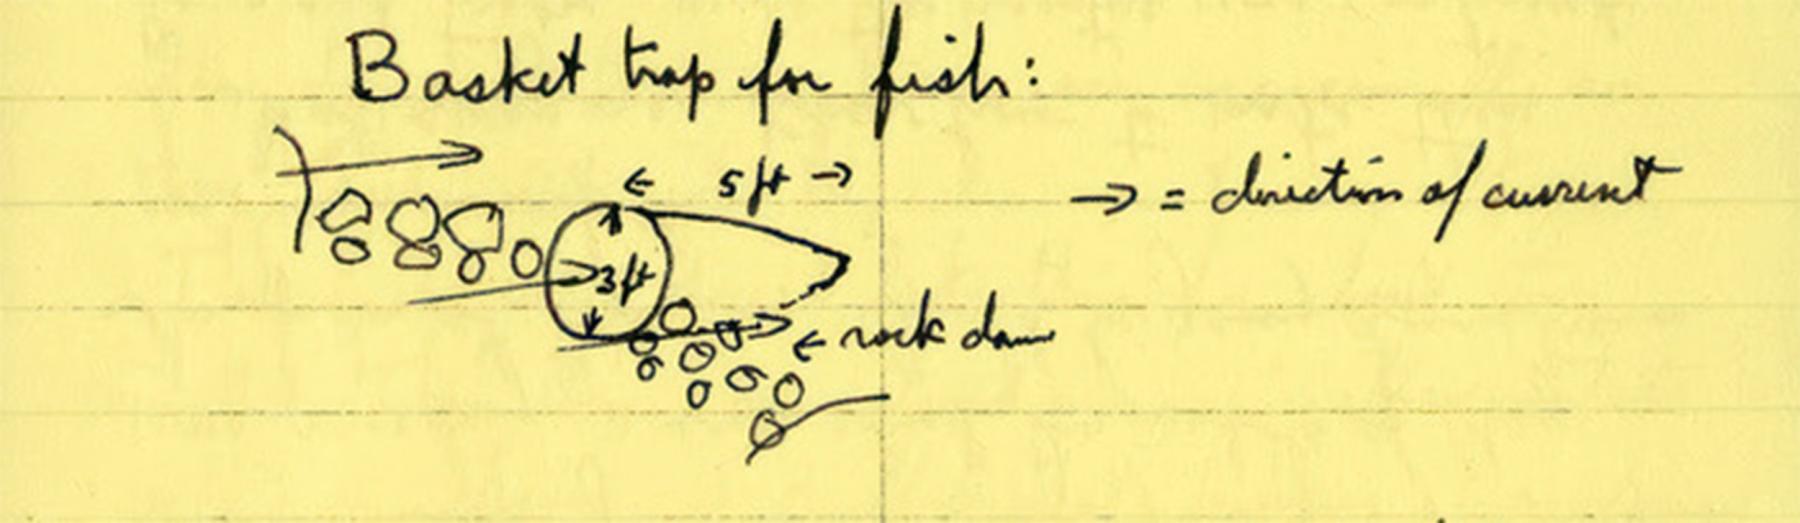 Basket trap for fish:
← 5 ft →
→ = direction of current
3 ft
← rock dam